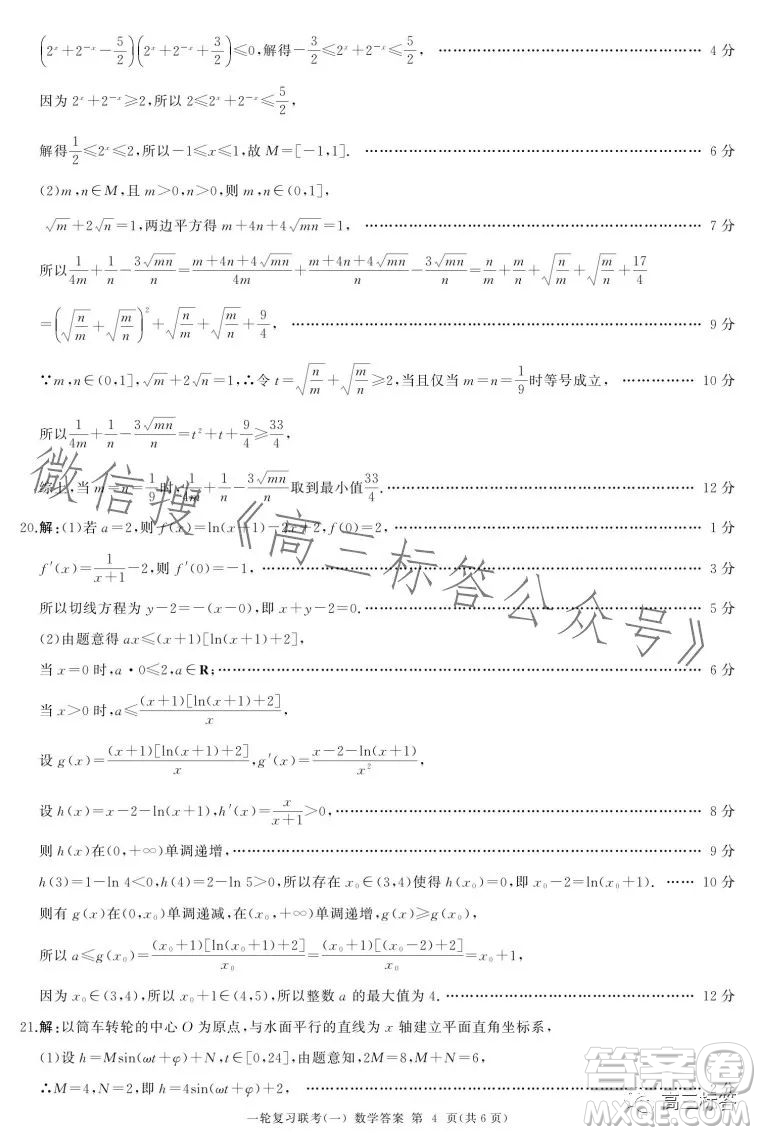 (2ˣ+2⁻ˣ-5/2)(2ˣ+2⁻ˣ+3/2)≤0,解得-3/2≤2ˣ+2⁻ˣ≤5/2, …… 4分
因为2ˣ+2⁻ˣ≥2,所以2≤2ˣ+2⁻ˣ≤5/2,
解得1/2≤2ˣ≤2,所以-1≤x≤1,故M=[-1,1]. …… 6分
(2)m,n∈M,且m>0,n>0,则m,n∈(0,1],
√m+2√n=1,两边平方得m+4n+4√(mn)=1, …… 7分
所以1/(4m)+1/n-3√(mn)/n=(m+4n+4√(mn))/(4m)+(m+4n+4√(mn))/n-3√(mn)/n=n/m+m/n+√(n/m)+√(m/n)+17/4
=(√(n/m)+√(m/n))²+√(n/m)+√(m/n)+9/4, …… 9分
∵m,n∈(0,1],√m+2√n=1,∴令t=√(n/m)+√(m/n)≥2,当且仅当m=n=1/9时等号成立, …… 10分
所以1/(4m)+1/n-3√(mn)/n=t²+t+9/4≥33/4,
综上,当m=n=1/9时,1/(4m)+1/n-3√(mn)/n取到最小值33/4. …… 12分
20.解:(1)若a=2,则f(x)=ln(x+1)-2x+2,f(0)=2, …… 1分
f′(x)=1/(x+1)-2,则f′(0)=-1, …… 3分
所以切线方程为y-2=-(x-0),即x+y-2=0. …… 5分
(2)由题意得ax≤(x+1)[ln(x+1)+2],
当x=0时,a·0≤2,a∈R; …… 6分
当x>0时,a≤(x+1)[ln(x+1)+2]/x,
设g(x)=(x+1)[ln(x+1)+2]/x,g′(x)=(x-2-ln(x+1))/x²,
设h(x)=x-2-ln(x+1),h′(x)=x/(x+1)>0, …… 8分
则h(x)在(0,+∞)单调递增, …… 9分
h(3)=1-ln 4<0,h(4)=2-ln 5>0,所以存在x₀∈(3,4)使得h(x₀)=0,即x₀-2=ln(x₀+1). …… 10分
则有g(x)在(0,x₀)单调递减,在(x₀,+∞)单调递增,g(x)≥g(x₀),
所以a≤g(x₀)=(x₀+1)[ln(x₀+1)+2]/x₀=(x₀+1)[(x₀-2)+2]/x₀=x₀+1,
因为x₀∈(3,4),所以x₀+1∈(4,5),所以整数a的最大值为4. …… 12分
21.解:以筒车转轮的中心O为原点,与水面平行的直线为x轴建立平面直角坐标系,
(1)设h=Msin(ωt+φ)+N,t∈[0,24],由题意知,2M=8,M+N=6,
∴M=4,N=2,即h=4sin(ωt+φ)+2, ……
一轮复习联考(一) 数学答案 第 4 页(共6页)
微信搜《高三标答公众号》
答案圈
高三标答